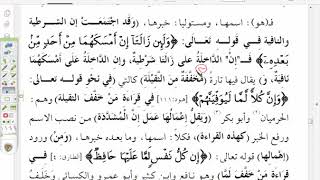 فـ(هو): اسمها، ومستوليا: خبرها، وَقَد اجْتَمَعَتْ إِن الشرطية
والنافية في قوله تعالى: ﴿وَلَئِن زَالَتَا إِنْ أَمْسَكَهُمَا مِنْ أَحَدٍ مِّنْ
بَعْدِهِ﴾ فـ«إِنْ» الدَّاخِلَةُ على زالتا شَرْطِيَّة، وإن الدَّاخِلَةُ عَلَى أَمْسَكَهُمَا
نَافِيَة، و يقال فيها تارة (مُخَفَّفَةً مِنَ الثَّقِيلَة) كالتي (فِي نَحْوِ قوله تعالى:
﴿وَإِنَّ كُلًّا لَّمَّا لَيُوَفِّيَنَّهُمْ﴾ [هود: ١١١] فِي قِرَاءَة مَنْ خَفَّفَ الثقيلة) وهم:
الحرميان وأبو بكر (وَيَقِلُّ إِعْمَالُهَا عَمَلَ إِنَّ الْمُشَدَّدَة) من نصب الاسم
ورفع الخبر (كهذه القراءة)، فكلا: اسمها، وما بعده خبرها، (وَمِنْ) ورود
(إهمالها) قوله تعالى: (﴿إِن كُلُّ نَفْسٍ لَّمَّا عَلَيْهَا حَافِظٌ﴾ [الطارق: ٤] فِي
قِرَاءَة مَنْ خَفَّفَ لَمَا) وهو نافع وابن كثير وأبو عمرو والكسائي وخلف